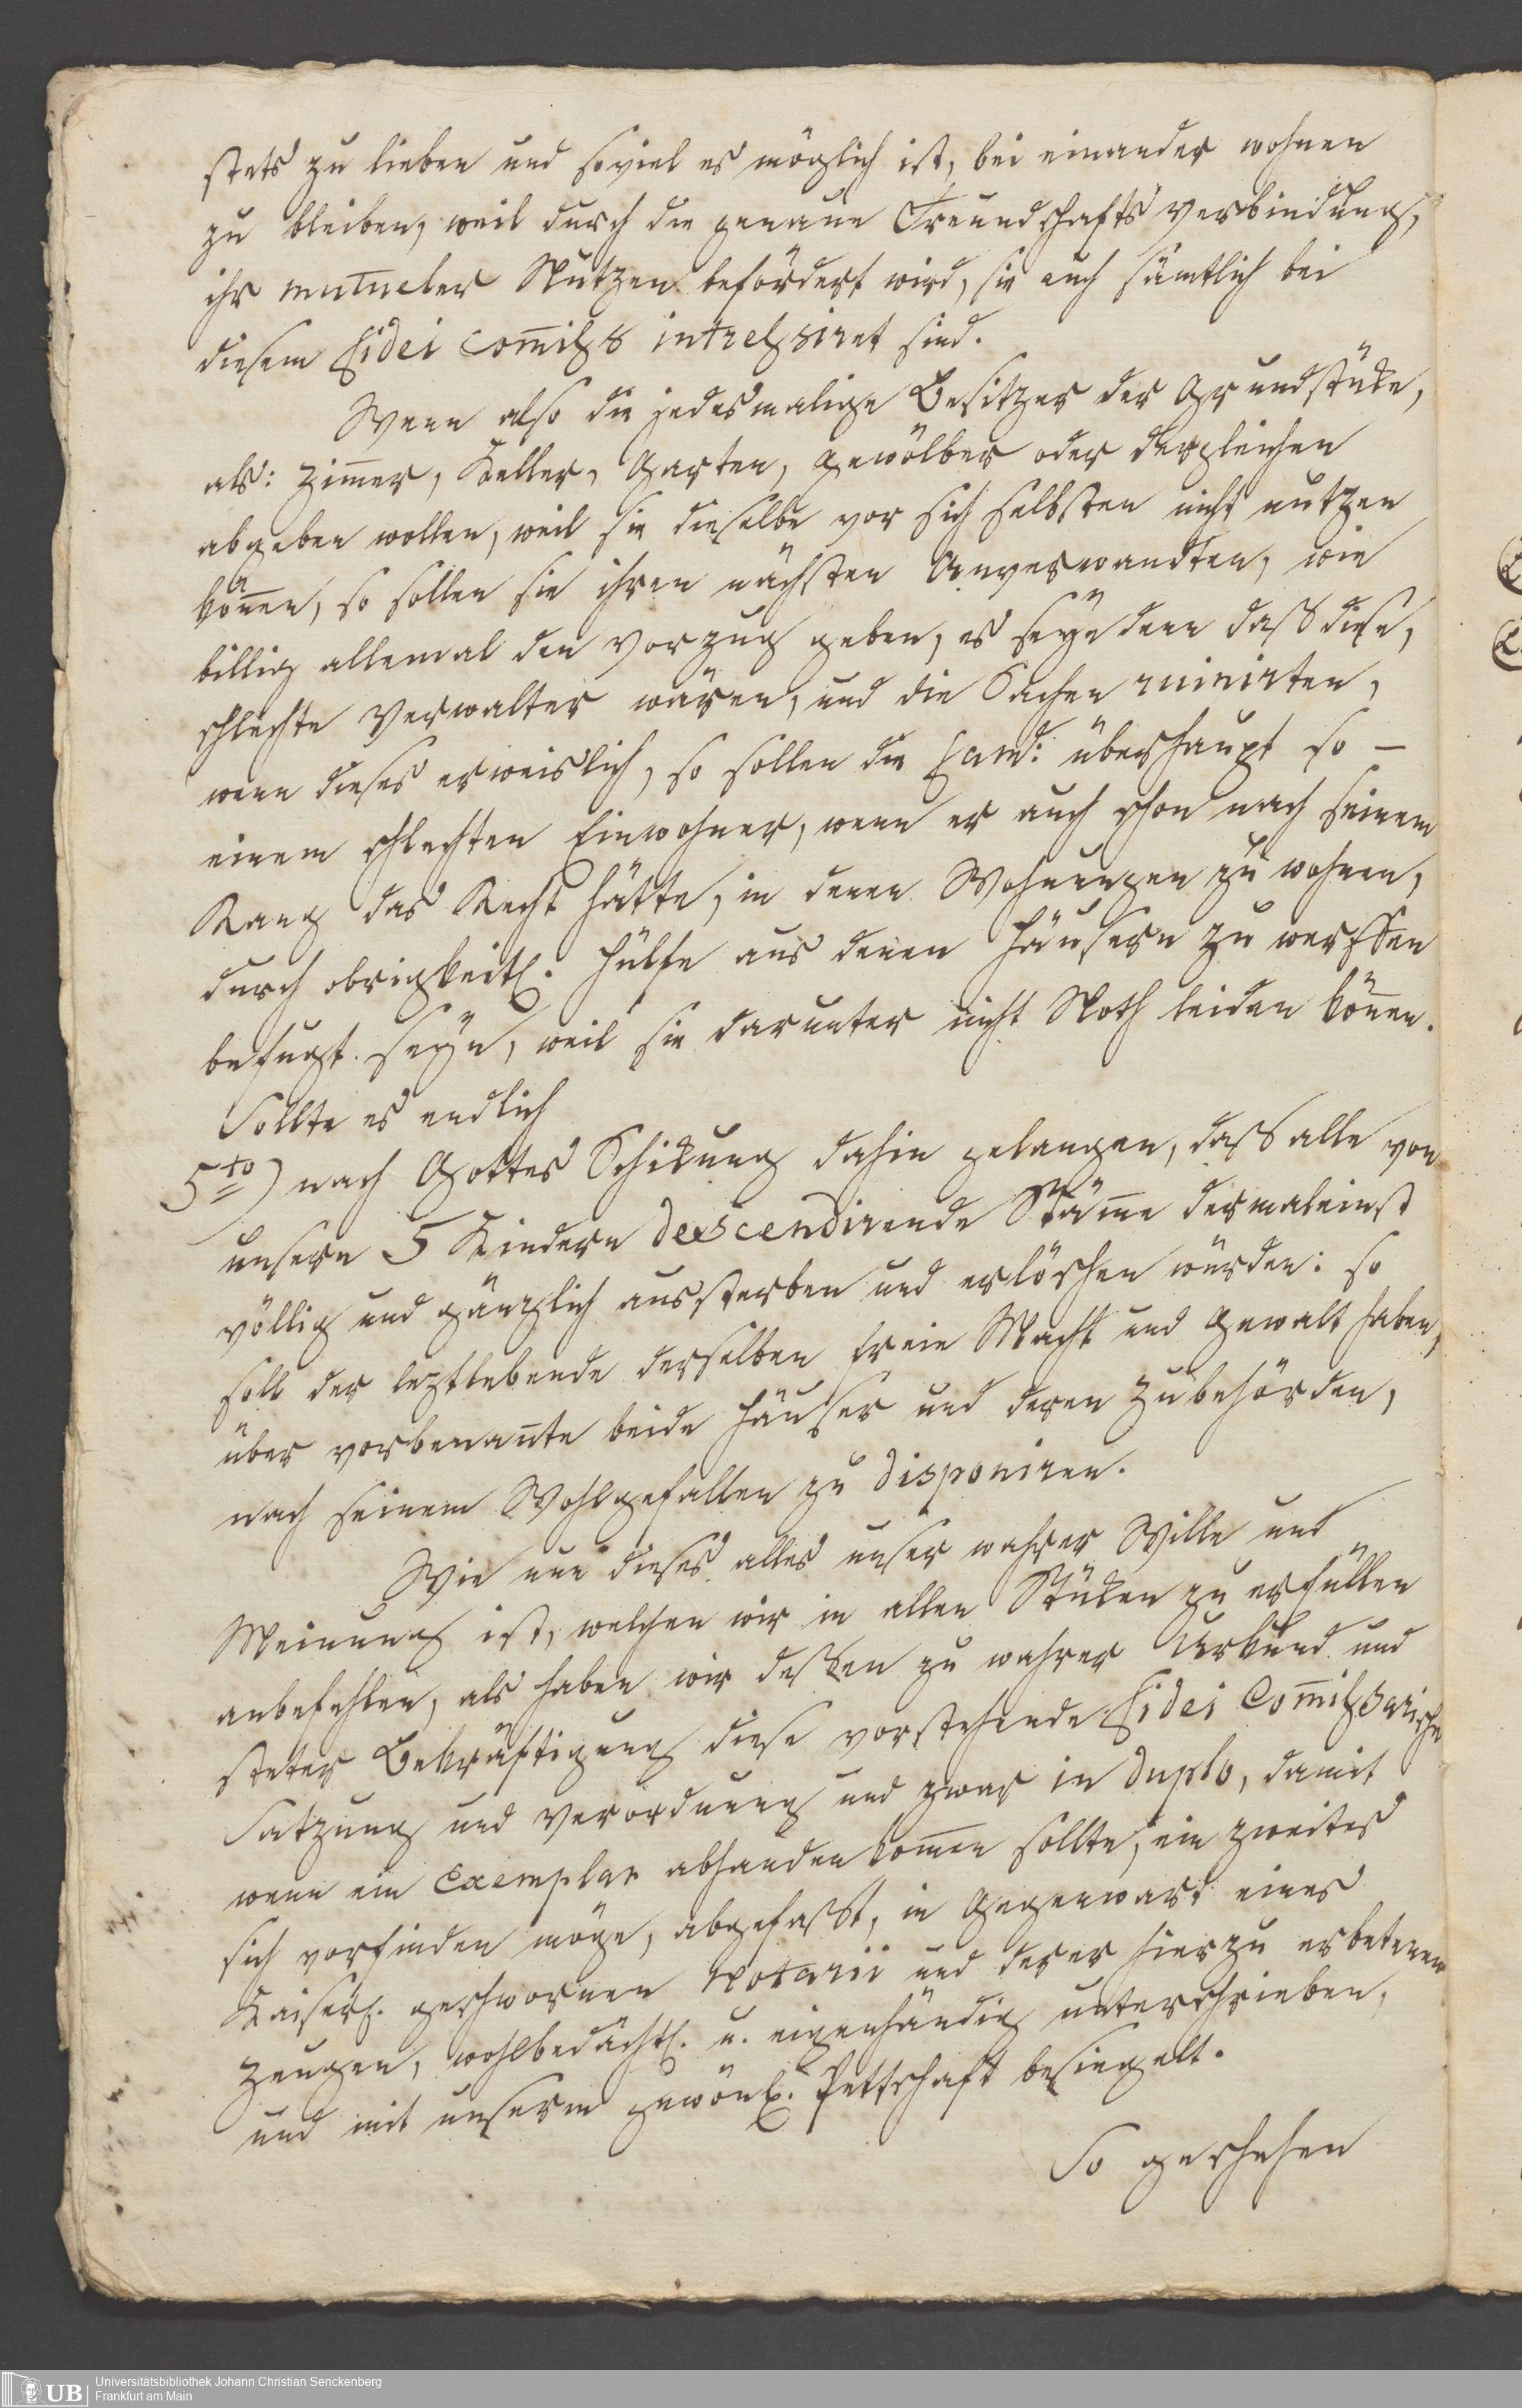 stets zu lieben und soviel es möglich ist, bei einander wohnen
zu bleiben, weil durch die genaue Freundschafts Verbindung,
ihr mutueler Nutzen befördert wird, sie auch sämtlich bei
diesem Fidei Com̄iss intressiret sind.
Wenn also die jedesmalige Besitzer der Grundstüke,
als: Zim̄er, Keller, Garten, Gewölber oder dergleichen
abgeben wollen, weil sie dieselbe vor sich selbsten nicht nutzen
kön̄en, so sollen sie ihren nächsten Anverwandten, wie
billig allemal den Vorzug geben, es seÿe denn daß diese,
schlechte Verwalter wären, und die Sachen ruinirten,
wenn dieses erweislich, so sollen die Fam: überhaupt so –
einem schlechten Einwohner, wenn er auch schon nach seinem
Rang das Recht hätte, in denen Wohnungen zu wohnen,
durch obrigkeitl. Hülfe aus denen Häusern zu werffen
befugt seÿn, weil sie darunter nicht Noth leiden kön̄en.
Sollte es endlich
5to) nach Gottes Schikung dahin gelangen, daß alle von
unsern 5 Kindern descendirende Stäm̄e dermaleinst
völlig und gänzlich aussterben und erlöschen würden: so
soll der leztlebende derselben freie Macht und Gewalt haben,
über vorbenan̄te beide Häuser und deren Zubehörden,
nach seinem Wohlgefallen zu disponiren.
Wie nun dieses alles unser wahrer Wille und
Meinung ist, welchen wir in allen Stüken zu erfüllen
anbefehlen, als haben wir deßen zu wahrer Urkund und
steter Bekräftigung diese vorstehende Fidei Com̄issarische
Satzung und Verordnung und zwar in duplo, damit
wenn ein Exemplar abhanden kom̄en sollte, ein zweites
sich vorfinden möge, abgefaßt, in Gegenwart eines
Kaiserl. geschwornen Notarii und derer hierzu erbetenen
Zeugen, wohlbedächtl. u. eigenhändig unterschrieben,
und mit unserm gewönl. Pettschaft besiegelt.
So geschehen
UB
Universitätsbibliothek Johann Christian Senckenberg
Frankfurt am Main